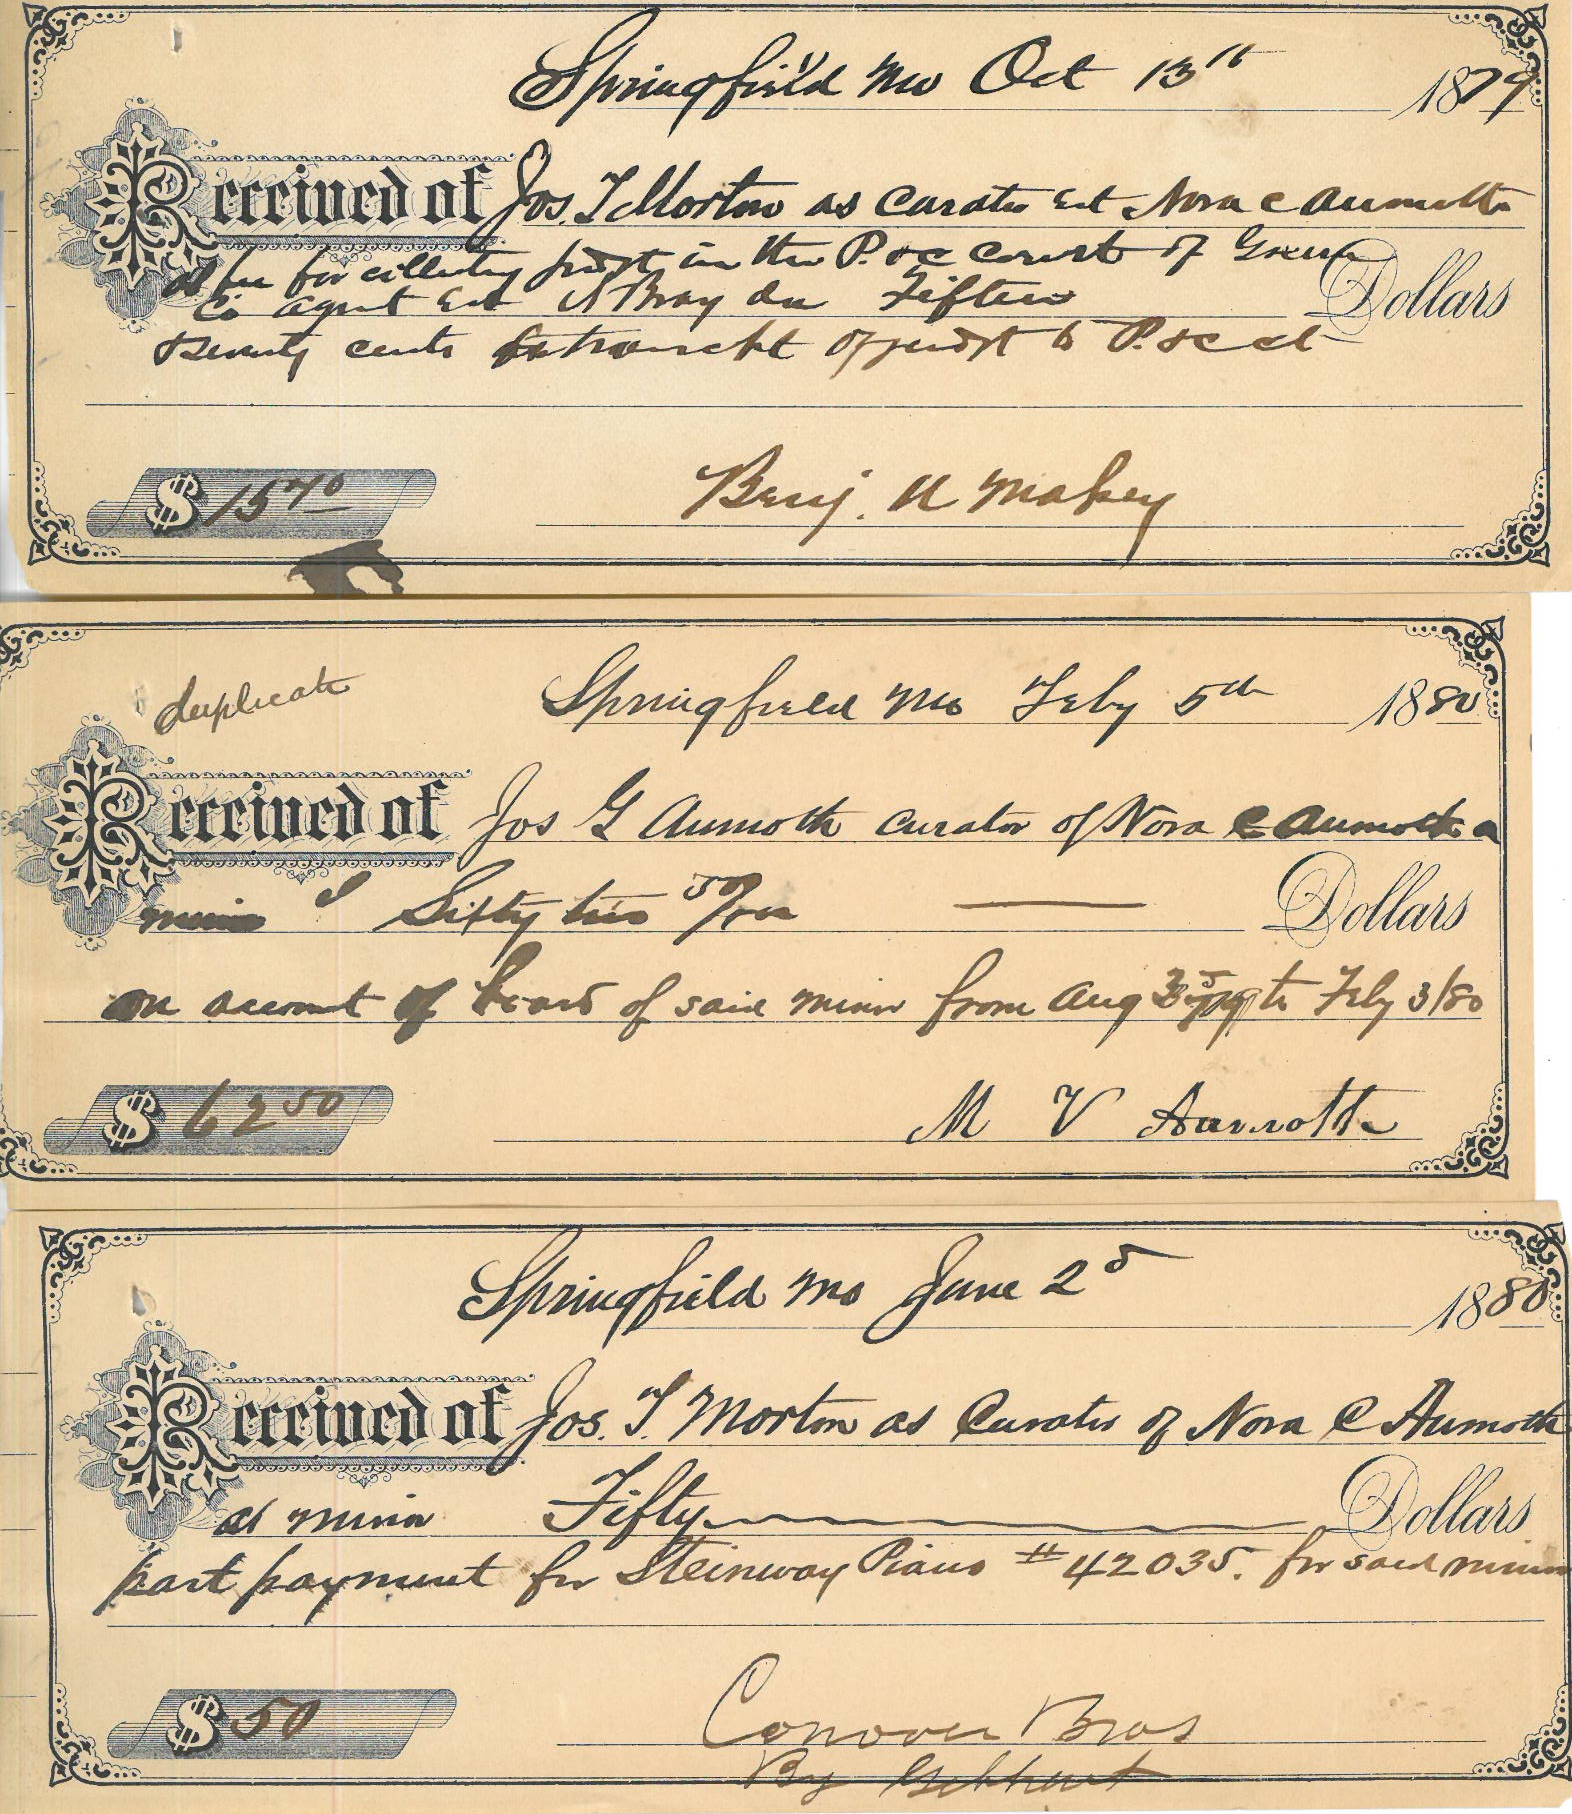 Springfield Mo Oct 13th 1879
Received of Jos. T Morton as Curator Est Nora C Aumoth
fee for collecting judgt in the P. &c Court of Green
Co agnst Est Bray dec Fifteen Dollars
& Seventy cents & transcht of judgt to P. &c ct
$ 15 70 Benj. U Massey
duplicate
Springfield Mo Feby 5th 1880
Received of Jos G Aumoth curator of Nora C Aumoth a
minor Sixty two 50/100 Dollars
on account of board of said minor from Aug to Feby 3/80
$ 62 50 M V Aumoth
Springfield Mo June 2d 1880
Received of Jos. T Morton as Curator of Nora C Aumoth
a minor Fifty Dollars
part payment for Steinway Piano # 42035. for said minor
$ 50 Conover Bros
By Gebhart